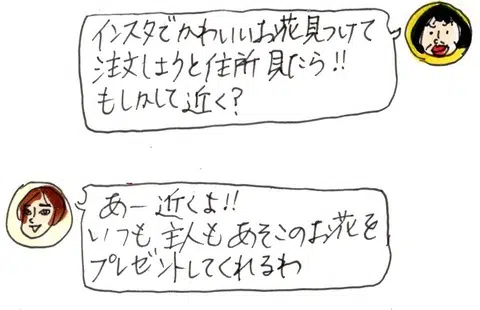 インスタでかわいいお花見つけて
注文しようと住所見たら!!
もしかして近く?
あー近くよ!!
いつも主人もあそこのお花を
プレゼントしてくれるわ